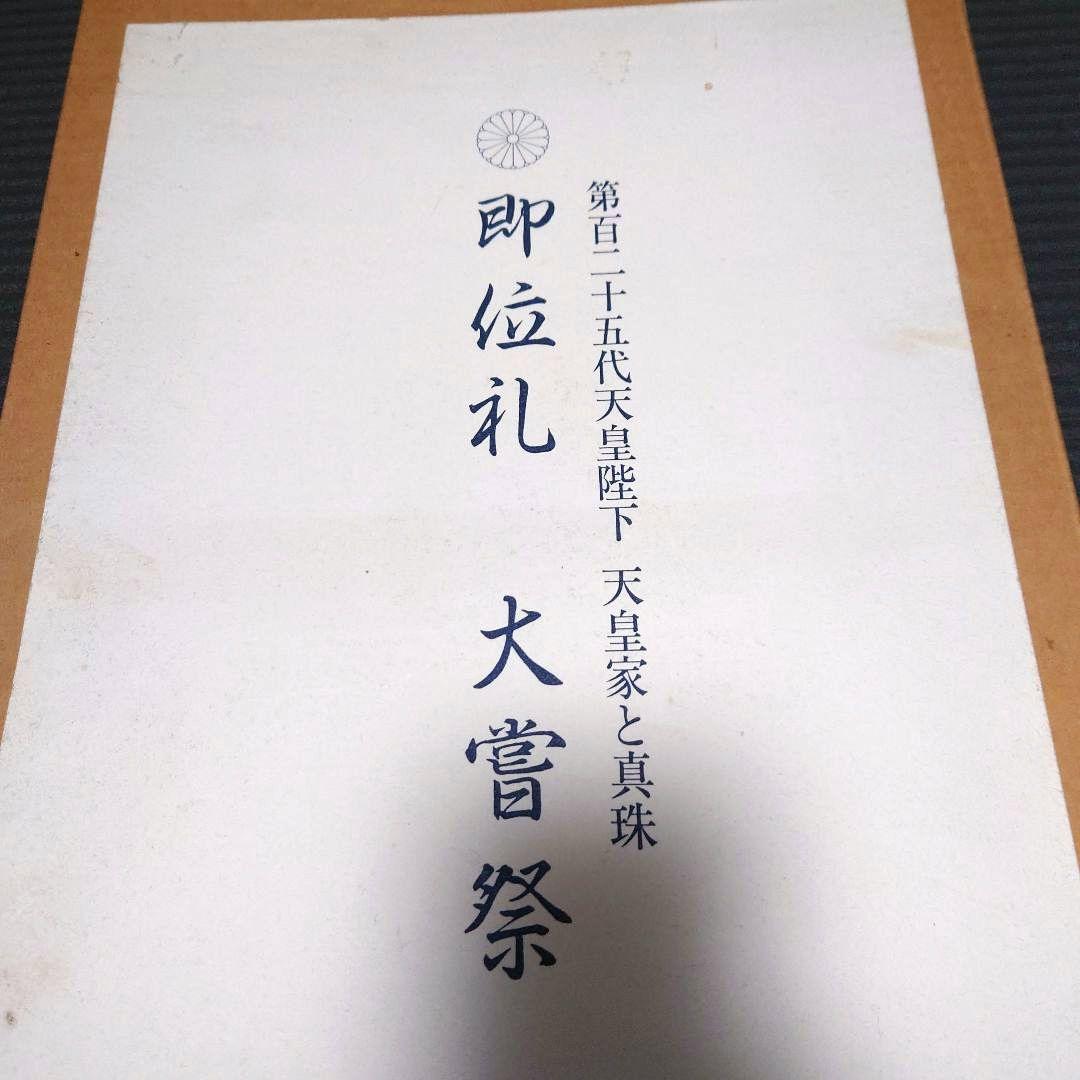 第百二十五代天皇陛下 天皇家と真珠
即位礼 大嘗祭